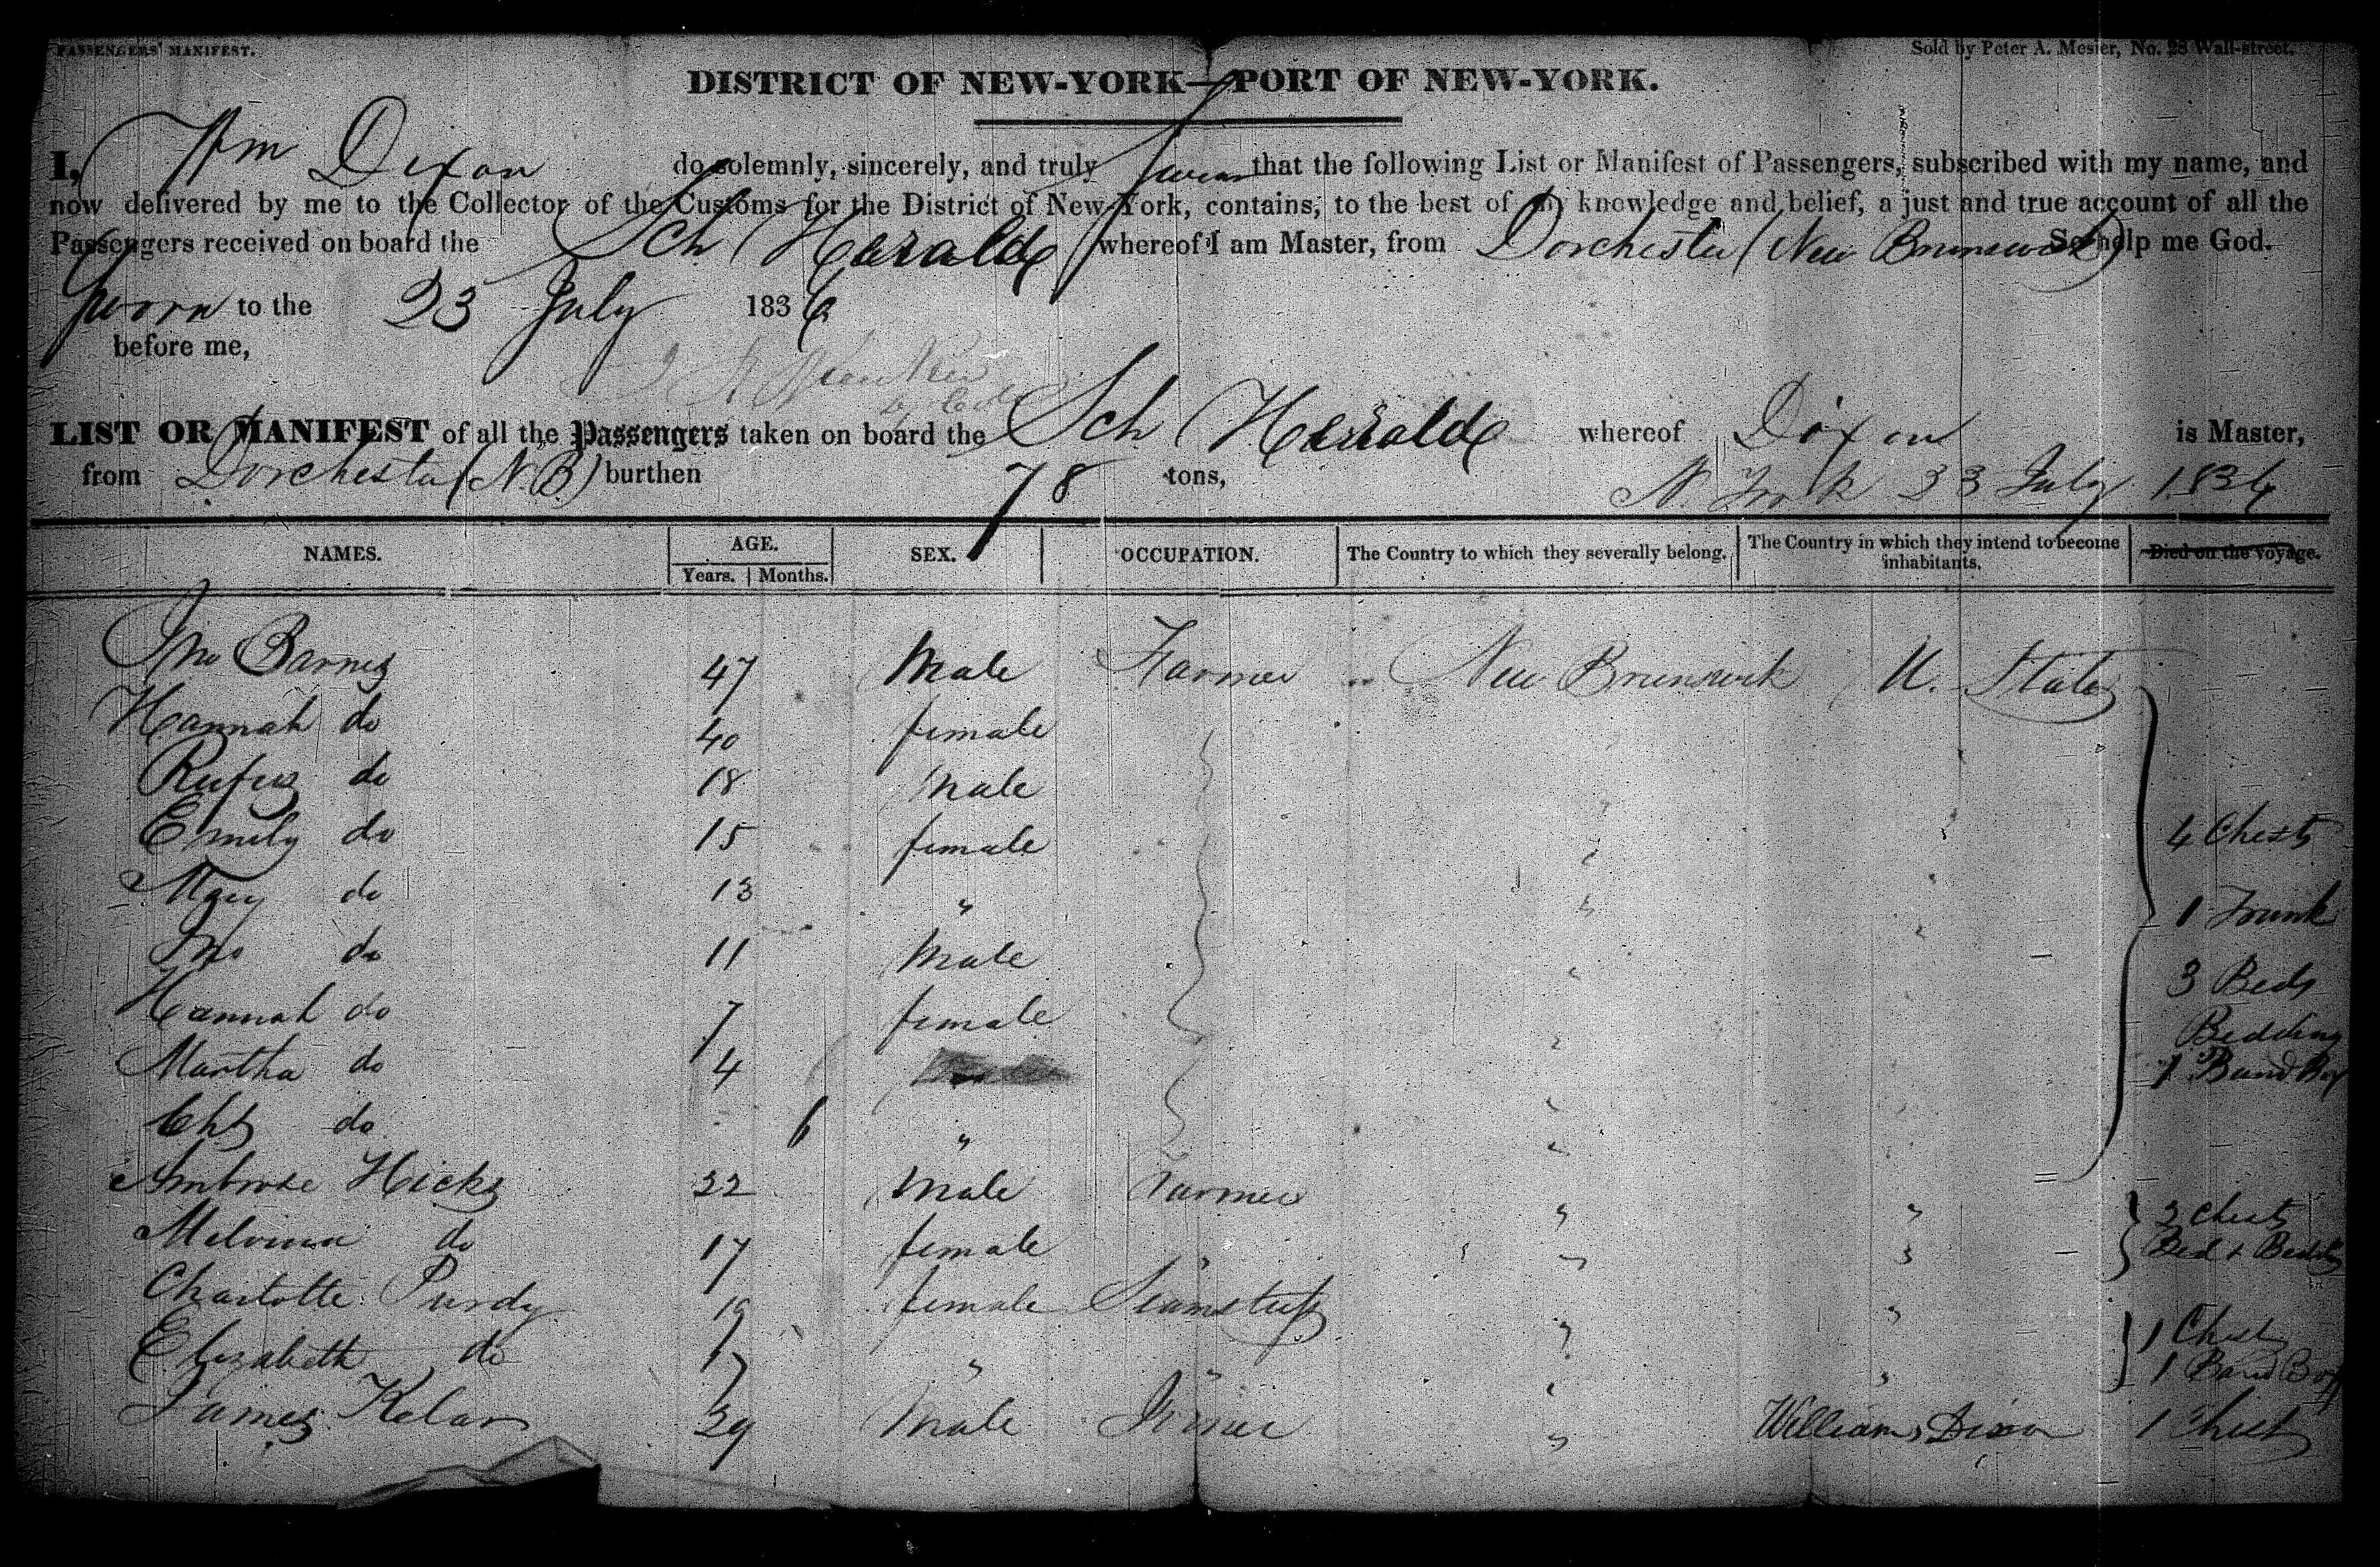 PASSENGERS' MANIFEST. Sold by Peter A. Mesier, No. 28 Wall-street.
DISTRICT OF NEW-YORK—PORT OF NEW-YORK.
I, Wm Dixon do solemnly, sincerely, and truly swear that the following List or Manifest of Passengers, subscribed with my name, and
now delivered by me to the Collector of the Customs for the District of New-York, contains, to the best of my knowledge and belief, a just and true account of all the
Passengers received on board the Sch Herald whereof I am Master, from Dorchester (New Brunswick) So help me God.
Sworn to the 23 July 1836
before me,
LIST OR MANIFEST of all the Passengers taken on board the Sch Herald whereof Dixon is Master,
from Dorchester (N.B) burthen 78 tons, N. York 23 July 1836
NAMES. AGE. Years. Months. SEX. OCCUPATION. The Country to which they severally belong. The Country in which they intend to become inhabitants. Died on the voyage.
Jno Barnes 47 Male Farmer New Brunswick U. States
Hannah do 40 female
Rufus do 18 Male
Emily do 15 female " 4 Chests
Mary do 13 " "
Jno do 11 Male " 1 Trunk
Hannah do 7 female " 3 Beds
Bedding
Martha do 4 " 1 Band Box
do 6 " "
Ambrose Hicks 22 Male Farmer " " 2 Chests
Melvina do 17 female " " " Bed & Bedding
Charlotte Purdy 19 female Seamstress " " 1 Chest
Elizabeth do 17 " " " " 1 Band Box
James 29 Male " William Dixon 1 Chest